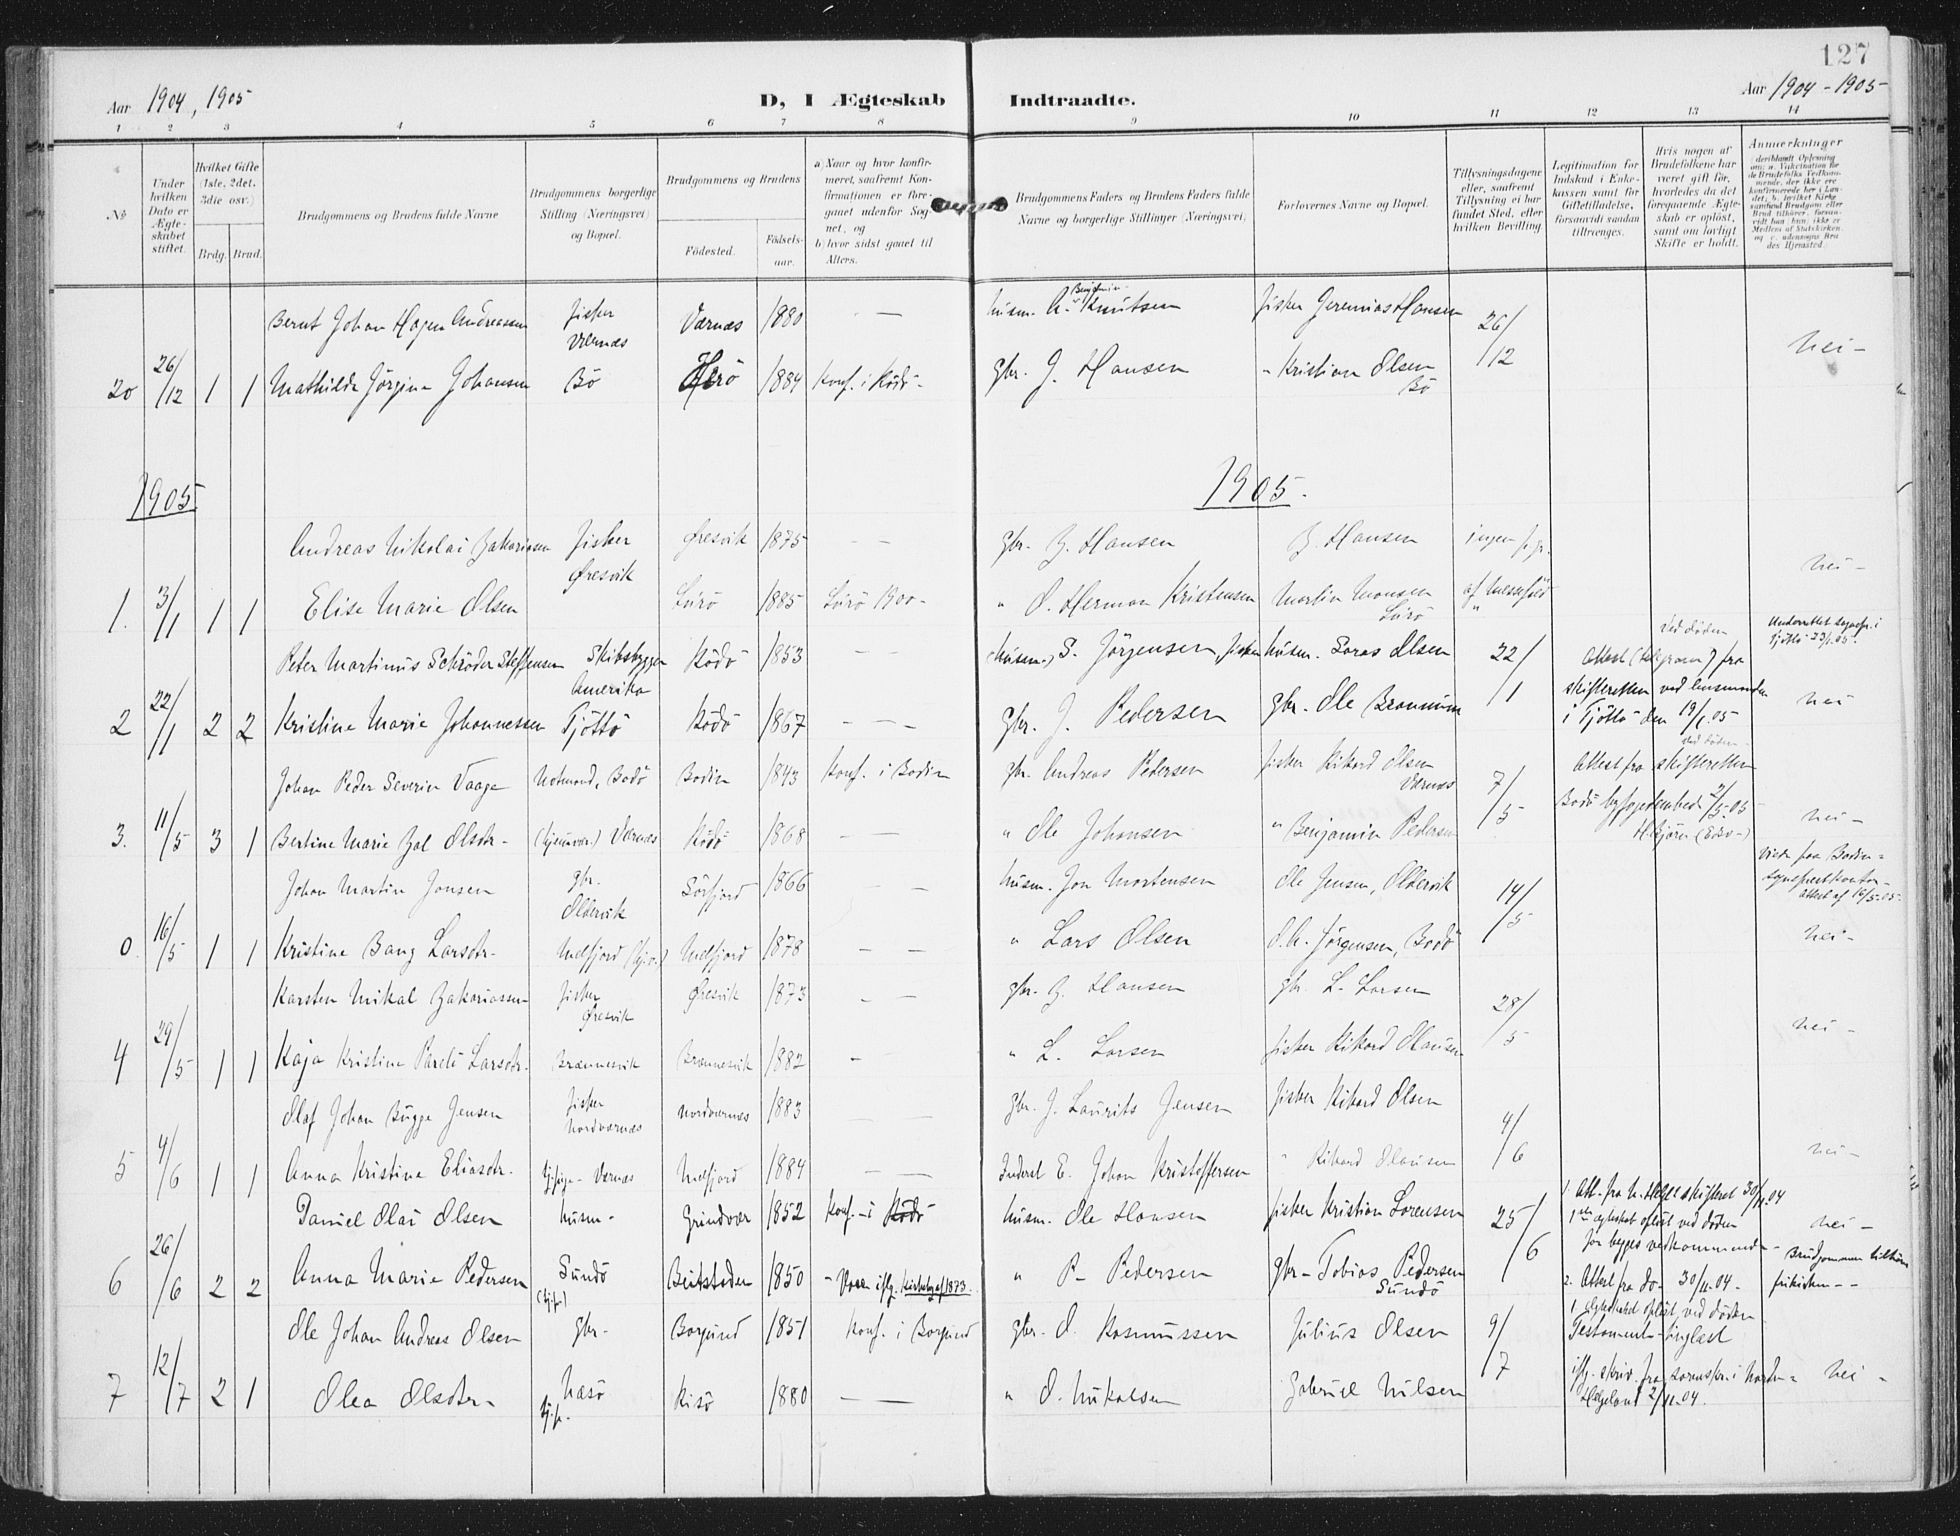 127
Aar 1904, 1905
D, I Ægteskab Indtraadte.
Aar 1904-1905
1 2 3 4 5 6 7 8 9 10 11 12 13 14
No
Under hvilken Dato er Ægteskabet stiftet.
Hvilket Gifte (1ste, 2det, 3die osv.)
Brdg. Brud.
Brudgommens og Brudens fulde Navne
Brudgommens borgerlige Stilling (Næringsvei) og Bopæl.
Brudgommens og Brudens
Födested.
Födselsaar.
a) Naar og hvor konfirmeret, saafremt Konfirmationen er foregaaet udenfor Sognet, og
b) hvor sidst gaaet til Alters.
Brudgommens Faders og Brudens Faders fulde Navne og borgerlige Stillinger (Næringsvei)
Forlovernes Navne og Bopæl.
Tillysningsdagene eller, saafremt Tillysning ei har fundet Sted, efter hvilken Bevilling
Legitimation for Indskud i Enkekassen samt for Giftetilladelse, forsaavidt saadan tiltrænges.
Hvis nogen af Brudefolkene har været gift før, hvorledes da det foregaaende Ægteskab er oplöst, samt om lovligt Skifte er holdt.
Anmerkninger
Bernt Johan Hagen Andreassen Fisker Værnæs Værnæs 1880 — husm. A. Benjamin Knutsen Fisker Jeremias Hansen 26/12
20 26/12 1 1 Mathilde Jörgine Johansen Bö Herö 1884 Konf. i Rödö- gbr. J. Hansen " Kristian Olsen Bö nei-
1905 1905.
Andreas Nikolai Zakariasen Fisker Øresvik Øresvik 1875 — gbr. Z. Hansen Z. Hansen ingen
1. 3/1 1 1 Elise Marie Olsen Lurö 1885 Lurö 1900- " O. Herman Kristensen Martin Monsen Lurö af nei-
Peter Martinus Schröder Steffensen Skibsbygger Amerika Rödö 1853 — (husm.) S. Jörgensen, fisker husm. Olsen 22/1 Attest (telegram) fra ved döden Underrettet sognepr. i Tjöttö 23/1.05.
2 22/1 2 2 Kristine Marie Johannessen Tjöttö Rödö 1867 — gbr. J. Pedersen gbr. Ole skifteretten ved lensmanden i Tjöttö den 19/1.05 nei
Johan Peder Severin Vaage Notmand, Bodö Bodin 1843 Konf. i Bodin gbr. Andreas Pedersen fisker Rikard Olsen Værnæs 7/5 Attest fra skifteretten ved döden
3. 11/5 3 1 Bertine Marie Zal Olsdtr. (hjemvær.) Værnæs Rödö 1868 — " Ole Johansen " Benjamin Pedersen Bodö byfogedembed 2/5.05 nei-
Johan Martin Jonsen gbr. Oldervik Sörfjord 1866 — husm. Jon Mortensen Ole Jensen, Oldervik 14/5 Viede paa Bodin sogneprestkontor attest af 16/5.05.
0. 16/5 1 1 Kristine Bang Larsdtr. Melfjord Melfjord 1878 — " Lars Olsen O. A. Jörgensen, Bodö nei-
Karsten Mikal Zakariassen fisker Øresvik Øresvik 1873 — gbr. Z. Hansen gbr. L. Larsen 28/5
4 29/5 1 1 Kaja Kristine Larsdtr. Brænnesvik Brænnesvik 1882 - " L. Larsen fisker Rikard Olausen nei-
Olaf Johan Bugge Jensen fisker Nordværnæs Nordværnæs 1883 — gbr. J. Laurits Jensen fisker Rikard Olsen 4/6
5 4/6 1 1 Anna Kristine Eliasdtr. Værnæs Melfjord 1884 — Inderst E. Johan Kristoffersen " Rikard Olausen nei-
Daniel Olai Olsen husm- Grindvær 1852 Konf.- i Rödö husm. Ole Hansen fisker Kristian Lorensen 25/6 1. Att. fra skifteret 30/11.04 1ste egteskab oplöst ved döden for begges vedkommende nei-
6 26/6 2 2 Anna Marie Pedersen Sundö Beitstaden 1850 " P. Pedersen gbr- Tobias Pedersen Sundö 2. Attest fra do- 30/11.04. Brudgommen frikirken--
Ole Johan Andreas Olsen gbr. Borgund 1851 Konf. i Borgund gbr. O. Rasmussen Julius Olsen 9/7 1. egteskabet oplöst ved döden Testament tinglæst
7 12/7 2 1 Olea Olsdtr. Næsö Risö 1880 — " O. Nikolsen Gabriel Nilsen ifg. skriv. fra sorenskr. i Helgeland 2/11.04. nei-